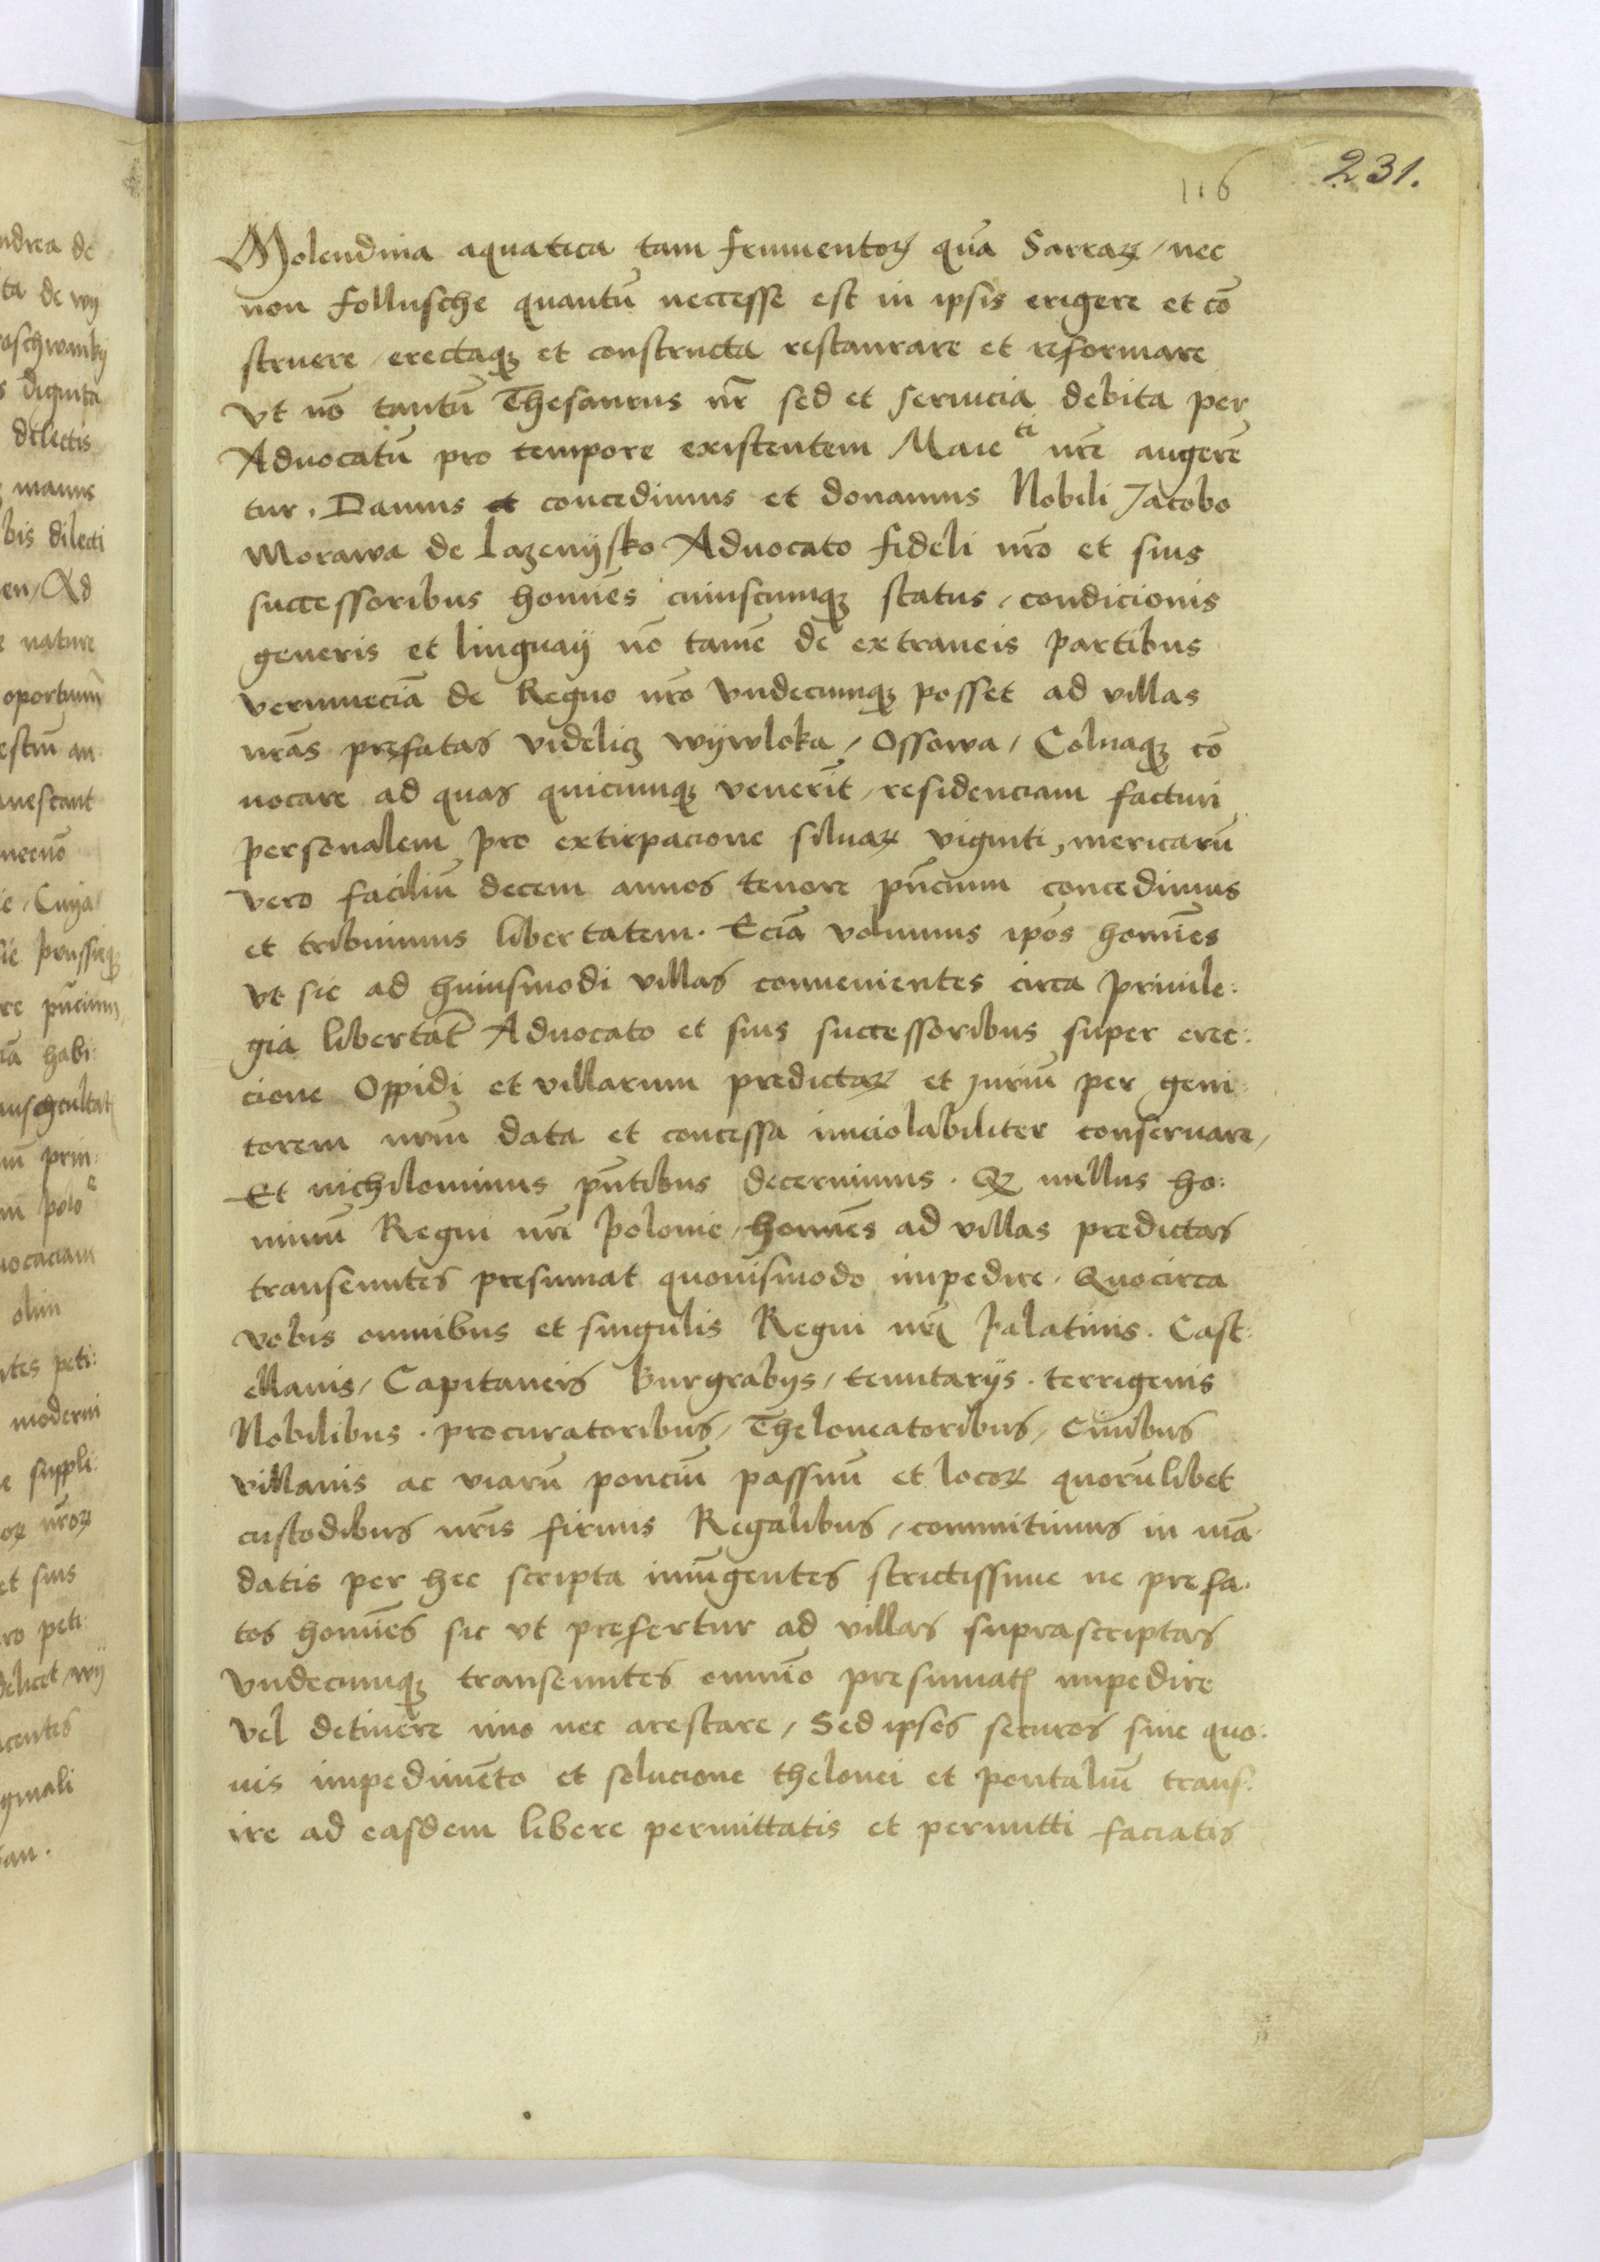 231.
116
Molendina aquatica tam frumentoꝝ quā Sarraꝝ / nec
non follusche quantū neccesse est in ipsis erigere et cō
struere / erectaqꝫ et constructa restaurare et reformare
Vt nō tantū Thesaurus nr̄ sed et seruicia debita per
Aduocatū pro tempore existentem Maieti nr̄e augerē
tur. Damus et concedimus et donamus Nobili Jacobo
Morawa de Lazenÿsko Aduocato fideli nr̄o et suis
successoribus homīes cuiuscumqꝫ status / condicionis
generis et linguaÿ nō tamē de extraneis partibus
verumeciā de Regno nr̄o Vndecumqꝫ posset ad villas
nr̄as prefatas videliꝫ wÿwloka / Ossowa / Colnaqꝫ cō
uocare ad quas quicumqꝫ venerīt / residenciam facturi
personalem pro extirpacione siluaꝝ viginti, mericarū
vero faciliū decem annos tenore pn̄cium concedimus
et tribuimus libertatem. Eciā volumus ip̄os homīes
Vt sic ad huiusmodi villas conuenientes circa priuile:
gia libertat̄ Aduocato et suis successoribus super erec:
cione Oppidi et villarum predictaꝝ et juriū per geni
torem nrm̄ data et concessa inuiolabiliter conseruare /
Et nichilominus pn̄tibus decernimus. Qꝫ nullus ho:
minū Regni nr̄i Polonie / homīes ad villas predictas
transeuntes presumat quouismodo impedire. Quocirca
Vobis omnibus et singulis Regni nr̄i Palatinis. Cast:
ellanis / Capitaneis Burgrabÿs / tenutarÿs. terrigenis
Nobilibus. procuratoribus / Theloneatoribus / Ciuibus
villanis ac viarū ponciū passuū et locoꝝ quorūlibet
custodibus nr̄is firmis Regalibus / committimus in mā
datis per hec scripta iniūgentes strictissime ne prefa.
tos homīes sic vt prefertur ad villas suprascriptas
Vndecumqꝫ transeuntes omnīo presumatꝭ impedire
Vel detinere imo nec arestare / Sed ipsos securos sine quo:
uis impedimēto et solucione thelonei et pontaliū trans:
ire ad easdem libere permittatis et permitti faciatis